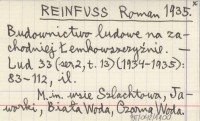 REINFUSS Roman 1935.
Budownictwo ludowe na za-
chodniej Łemkowszczyźnie. —
Lud 33 (ser. 2, t. 13) (1934-1935):
83-112, il.
M. in. wsie Szlachtowa, Ja-
worki, Biała Woda, Czarna Woda.